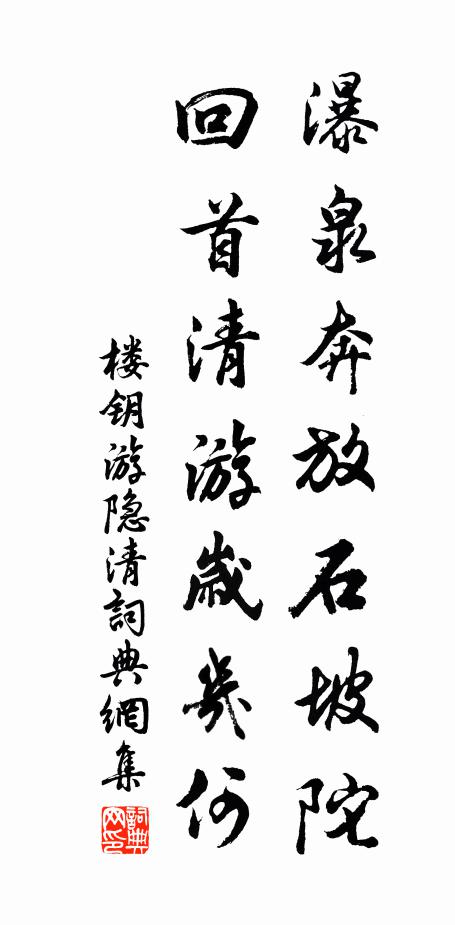 瀑泉奔放石坡陀
回首清游歲幾何
楼钥游隐清詞典網集
詞典网印